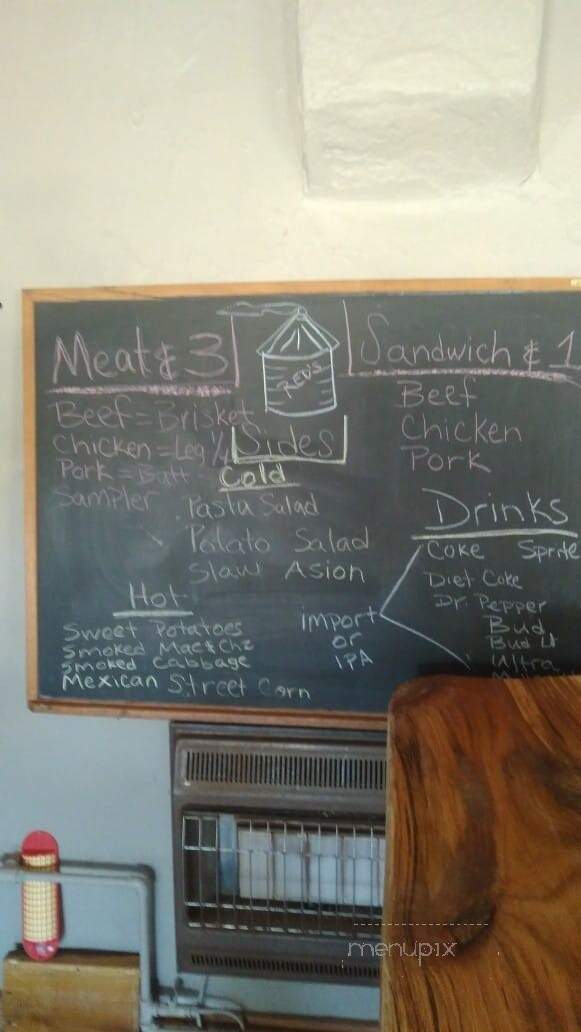 Meat & 3
Beef = Brisket
Chicken = Leg 1/4
Pork = Butt
Sampler
RED'S
Sides
Cold
Pasta Salad
Potato Salad
Slaw Asion
Hot
Sweet Potatoes
Smoked Mac & Chz
Smoked Cabbage
Mexican Street Corn
Sandwich & 1
Beef
Chicken
Pork
Drinks
Coke Sprite
Diet Coke
Dr. Pepper
Bud
Bud Lt
Ultra
import
or
IPA
menupix